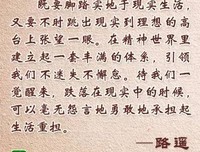 既要脚踏实地于现实生活，
又要不时跳出现实到理想的高
台上张望一眼。在精神世界里
建立起一套丰满的体系，引领
我们不迷失不懈怠。待我们一
觉醒来，跌落在现实中的时候，
可以毫无怨言地勇敢地承担起
生活重担。
——路遥